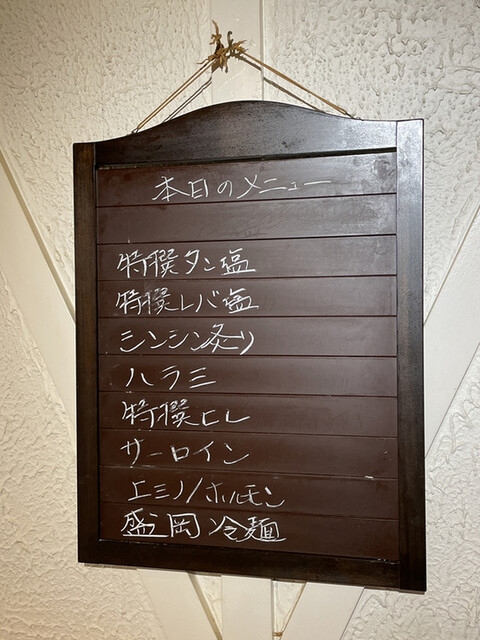 本日のメニュー
特撰タン塩
特撰レバ塩
シンシン炙り
ハラミ
特撰ヒレ
サーロイン
上ミノ/ホルモン
盛岡冷麺